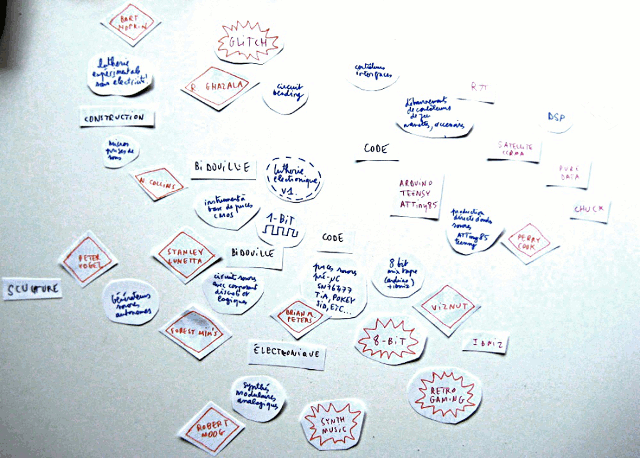 BART
HOPKIN
GLITCH
lutherie
expérimentale
sans électricité!
R GHAZALA
circuit
bending
contrôleurs
interfaces
RPI
détournements
de contrôleurs
de jeu
DSP
CONSTRUCTION
micros
prises de
sons
CODE
SATELLITE
CCRMA
BIDOUILLE
lutherie
électronique
v1
N. COLLINS
PURE
DATA
ARDUINO
TEENSY
ATTiny85
instruments à
base de puces
CMOS
CHUCK
1-BIT
production
directe de
sons
ATTiny85
teensy
PERRY
COOK
PETER
VOGEL
STANLEY
LUNETTA
BIDOUILLE
CODE
SCULPTURE
Générateurs
sonores
autonomes
circuits sonores
avec composants
discrets et
logiques
puces sonores
SN76477
TIA, POKEY
SID, ETC...
8 bit
mix tape
(arduino)
BRIAN M.
PETERS
VIZNUT
FOREST MIMS
8-BIT
ÉLECTRONIQUE
RETRO
GAMING
synthés
modulaires
analogiques
ROBERT
MOOG
SYNTH
MUSIC